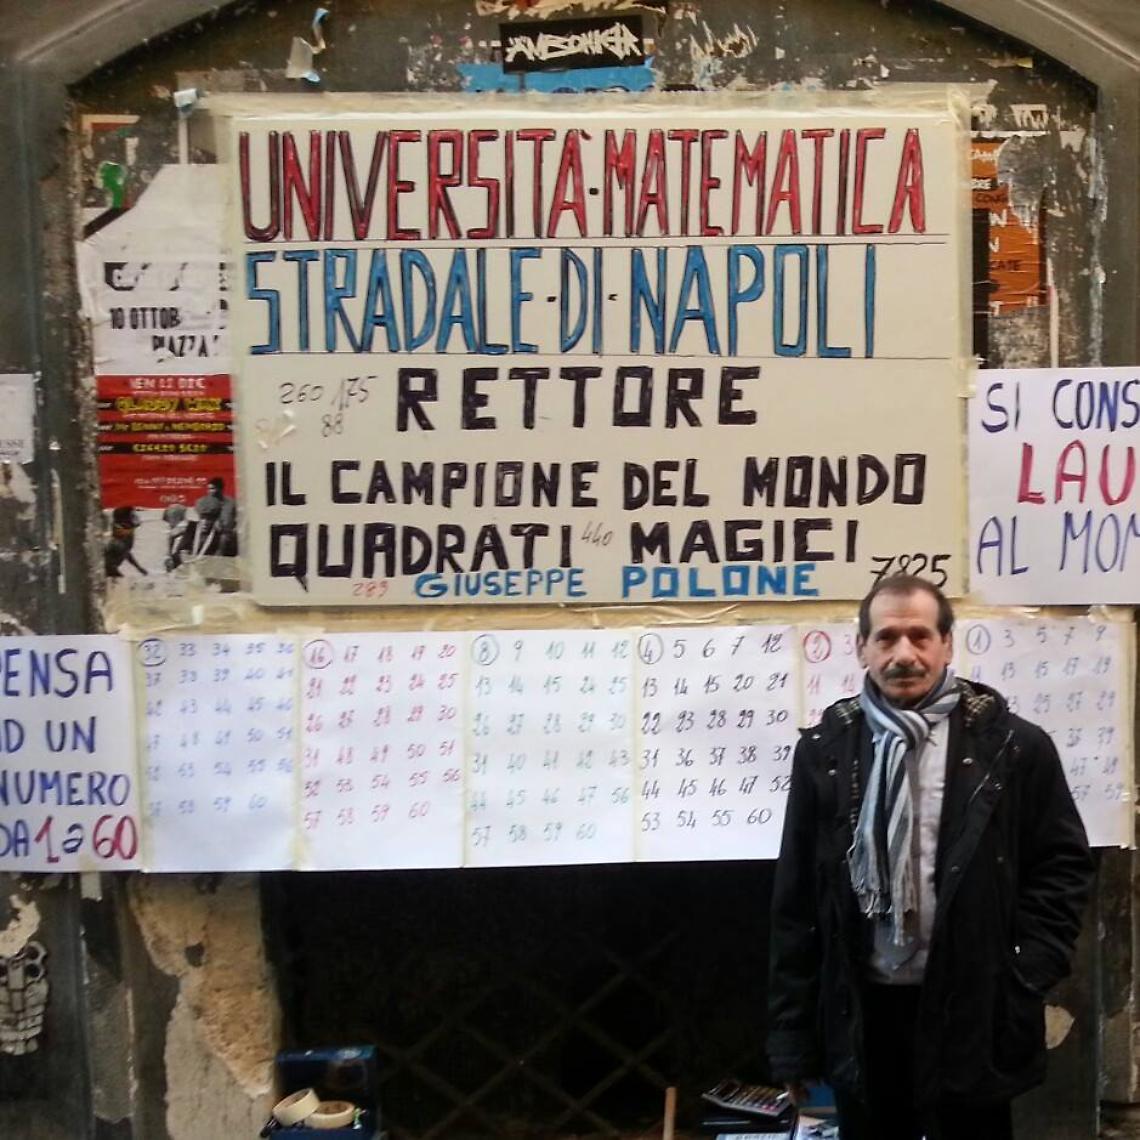 UNIVERSITÀ·MATEMATICA
STRADALE·DI·NAPOLI
260 175
88
RETTORE
IL CAMPIONE DEL MONDO
QUADRATI 440 MAGICI
289 GIUSEPPE POLONE 7825
10 OTTOB
PIAZZA
SI CONS
LAU
AL MOM
PENSA
AD UN
NUMERO
DA 1 a 60
32 33 34 35 36
37 38 39 40 41
42 43 44 45 46
47 48 49 50 51
52 53 54 55 56
57 58 59 60
16 17 18 19 20
21 22 23 24 25
26 27 28 29 30
31 48 49 50 51
52 53 54 55 56
57 58 59 60
8 9 10 11 12
13 14 15 24 25
26 27 28 29 30
31 40 41 42 43
44 45 46 47 56
57 58 59 60
4 5 6 7 12
13 14 15 20 21
22 23 28 29 30
31 36 37 38 39
44 45 46 47 52
53 54 55 60
2 3
11 14
1 3 5 7 9
13 15 17 19
25 27 29
37 39
47 49
57 59